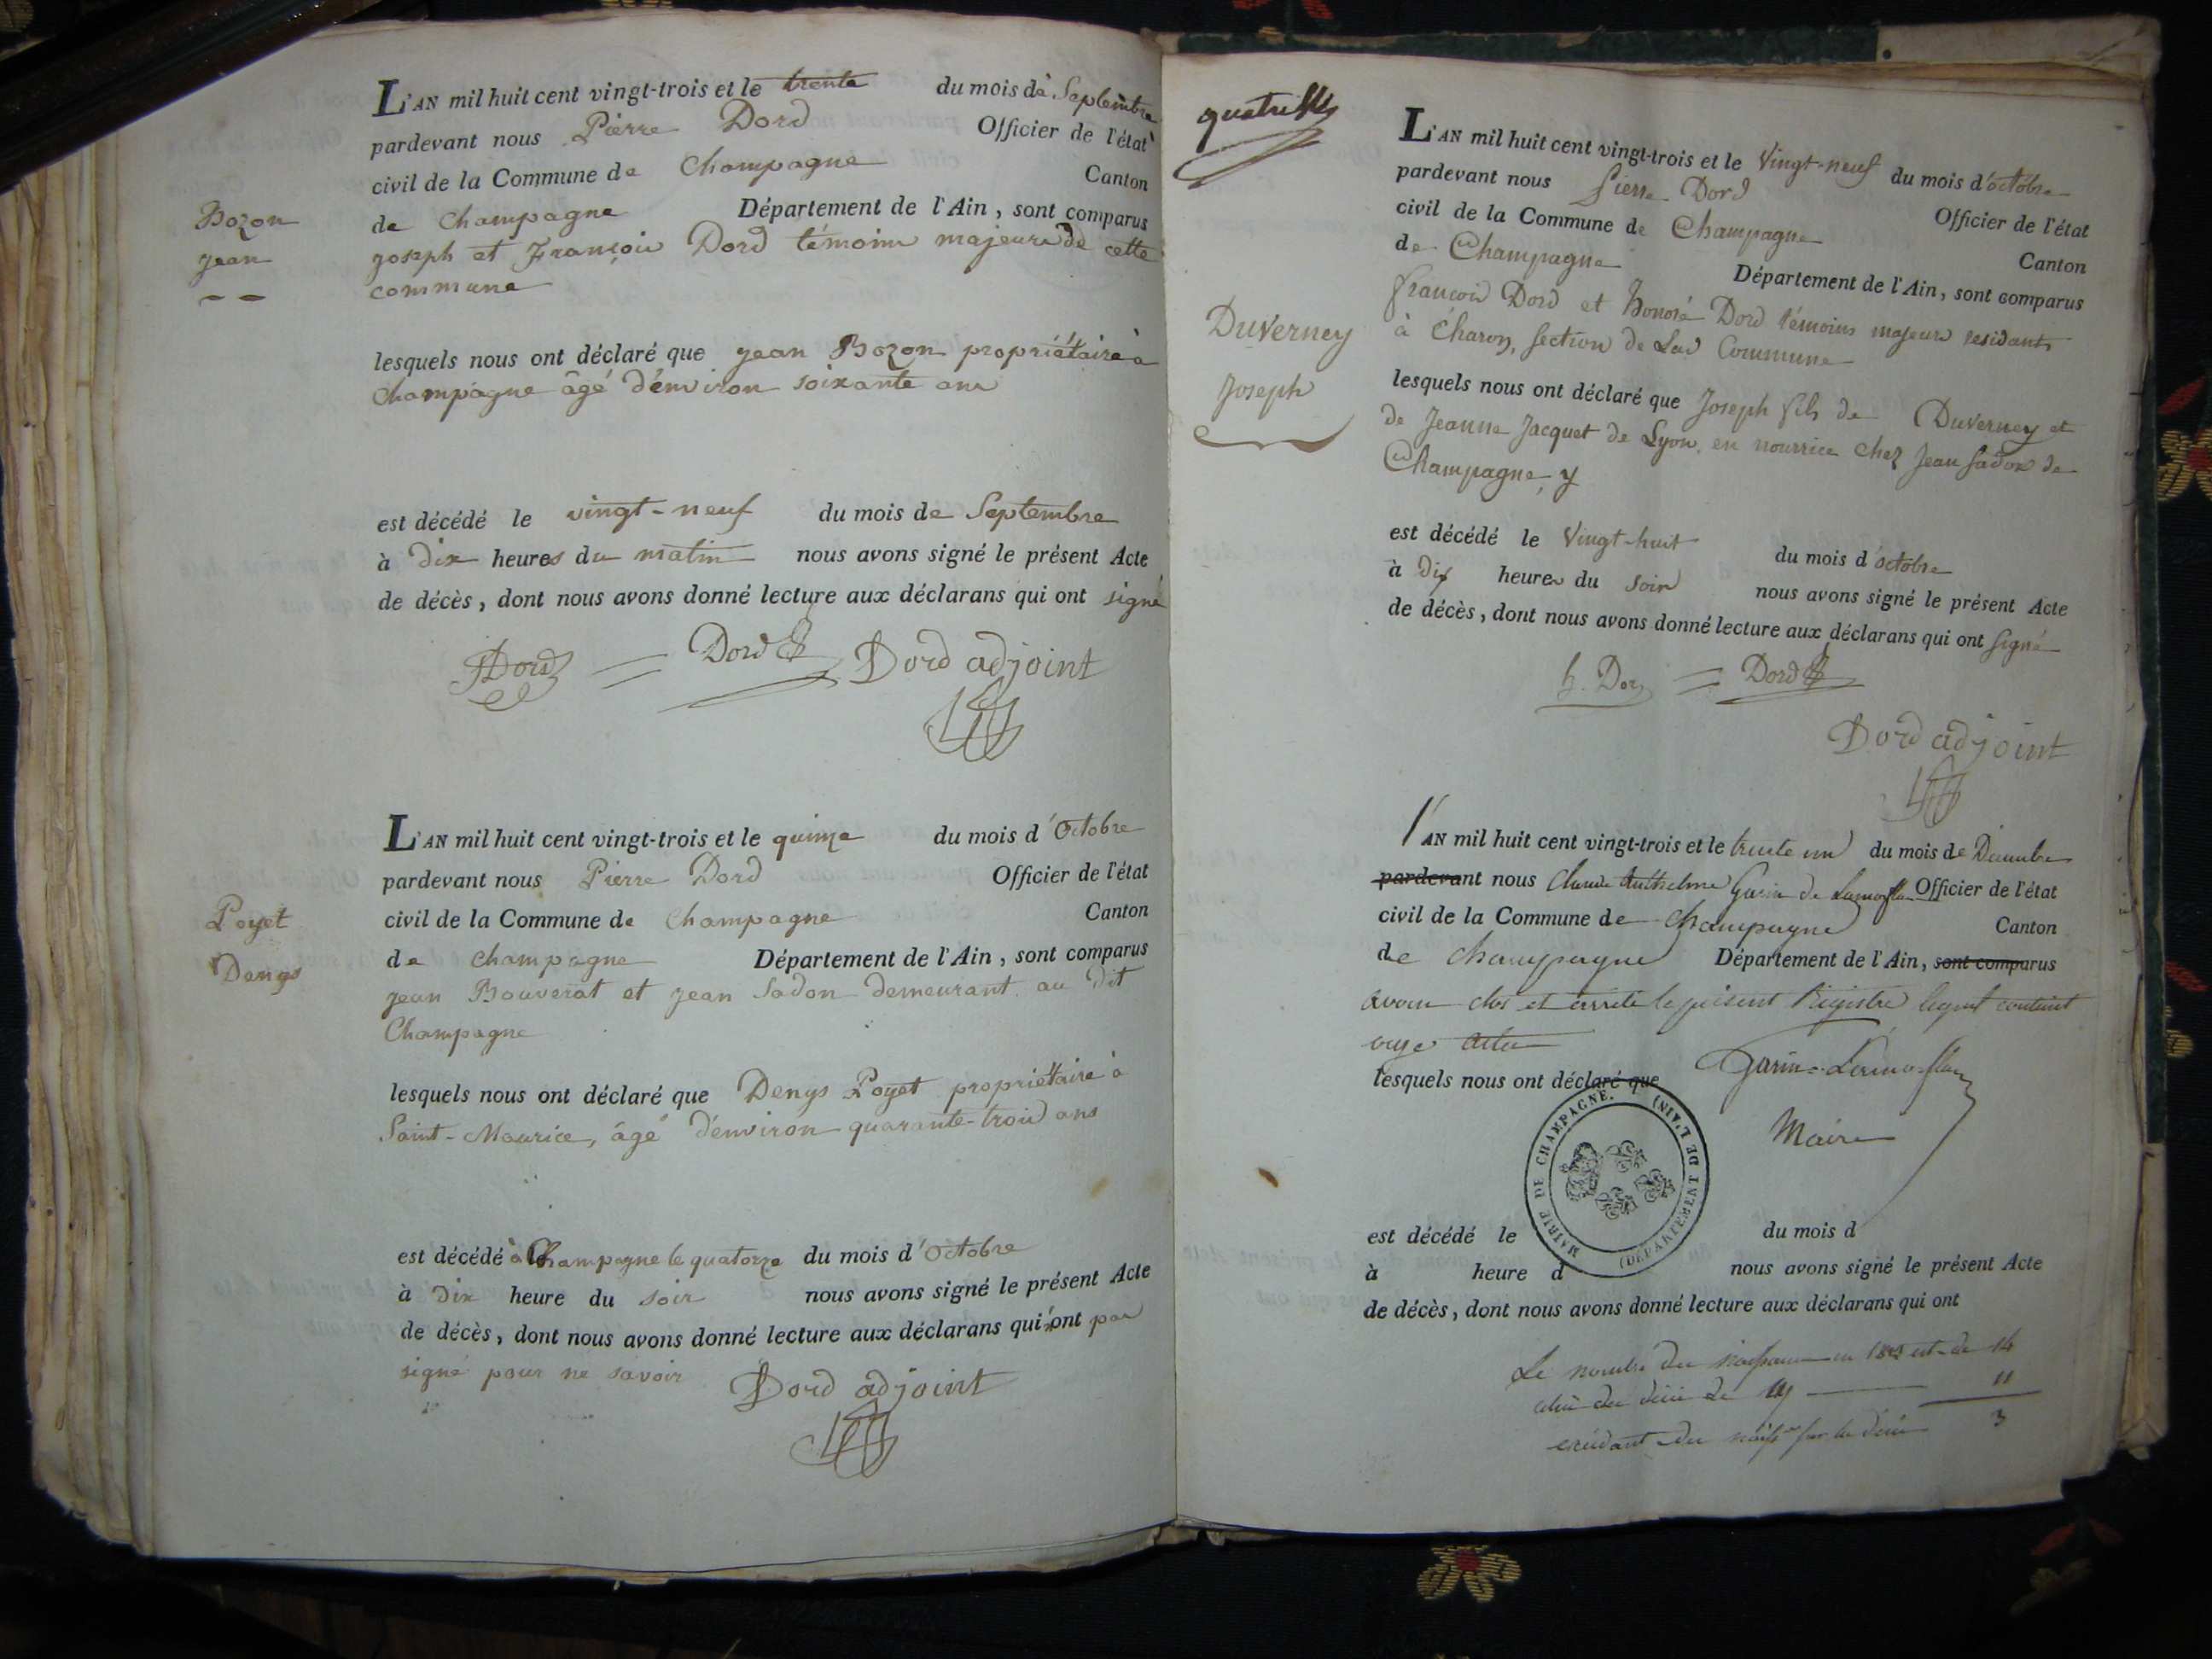 Bozon
jean
L'AN mil huit cent vingt-trois et le trente du mois de Septembre
pardevant nous Pierre Dord Officier de l'état
civil de la Commune de Champagne Canton
de Champagne Département de l'Ain, sont comparus
joseph et François Dord témoins majeurs de cette
commune
lesquels nous ont déclaré que jean Bozon propriétaire à
Champagne âgé d'environ soixante ans
est décédé le vingt-neuf du mois de Septembre
à dix heures du matin nous avons signé le présent Acte
de décès, dont nous avons donné lecture aux déclarans qui ont signé
JDord Dord Dord adjoint
Poyet
Denys
L'AN mil huit cent vingt-trois et le quinze du mois d'Octobre
pardevant nous Pierre Dord Officier de l'état
civil de la Commune de Champagne Canton
de Champagne Département de l'Ain, sont comparus
jean Bouverat et jean Sadon demeurant au dit
Champagne
lesquels nous ont déclaré que Denys Poyet propriettaire à
Saint-Maurice, âgé d'environ quarante-trois ans
est décédé à Champagne le quatorze du mois d'Octobre
à dix heure du soir nous avons signé le présent Acte
de décès, dont nous avons donné lecture aux déclarans qui ont pas
signé pour ne savoir Dord adjoint
Duverney
Joseph
L'AN mil huit cent vingt-trois et le Vingt-neuf du mois d'octobre
pardevant nous Pierre Dord Officier de l'état
civil de la Commune de Champagne Canton
de Champagne Département de l'Ain, sont comparus
françois Dord et honoré Dord témoins majeurs residants
à Charon, section de Lad Commune
lesquels nous ont déclaré que Joseph fils de Duverney et
de Jeanne Jacquet de Lyon, en nourrice chez Jean Sadon de
Champagne, y
est décédé le Vingt-huit du mois d'octobre
à dix heures du soir nous avons signé le présent Acte
de décès, dont nous avons donné lecture aux déclarans qui ont signé
h. Dord Dord
Dord adjoint
l'AN mil huit cent vingt-trois et le trente un du mois de Decembre
pardevant nous Claude Anthelme Garin de Officier de l'état
civil de la Commune de Champagne Canton
de Champagne Département de l'Ain, sont comparus
avons clos et arrêté le présent Registre lequel contient
onze actes
lesquels nous ont déclaré que Garin
Maire
MAIRIE DE CHAMPAGNE. (DÉPARTEMENT DE L'AIN)
est décédé le du mois d
à heure d nous avons signé le présent Acte
de décès, dont nous avons donné lecture aux déclarans qui ont
Le nombre des naissances en 1823 est de 14
celui des décès de 11
excédant des naiss.ces sur les décès 3